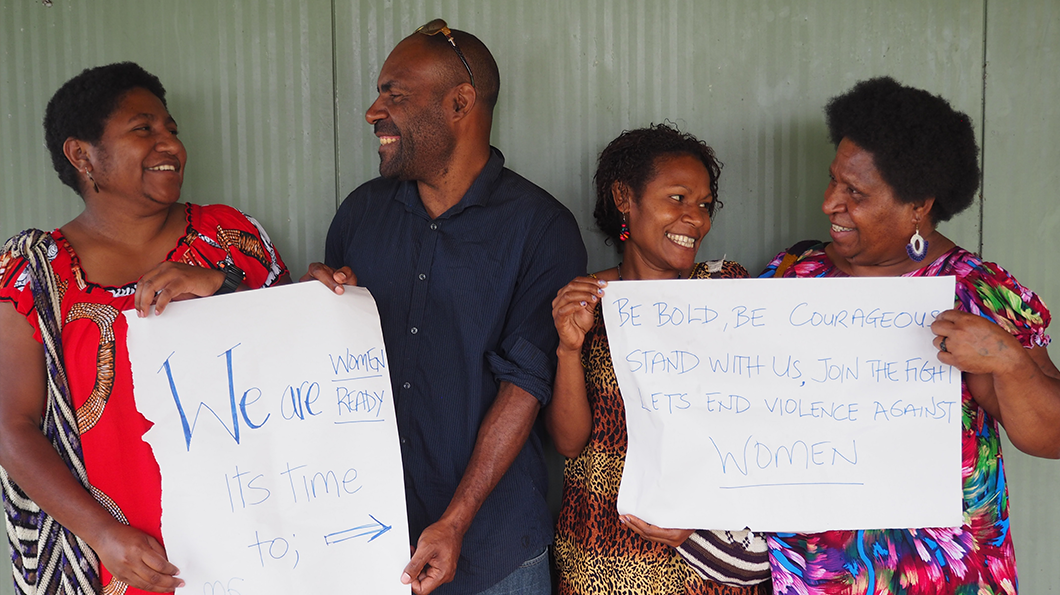 We are WOMEN
READY
Its Time
to;
BE BOLD, BE COURAGEOUS
STAND WITH US, JOIN THE FIGHT
LETS END VIOLENCE AGAINST
WOMEN